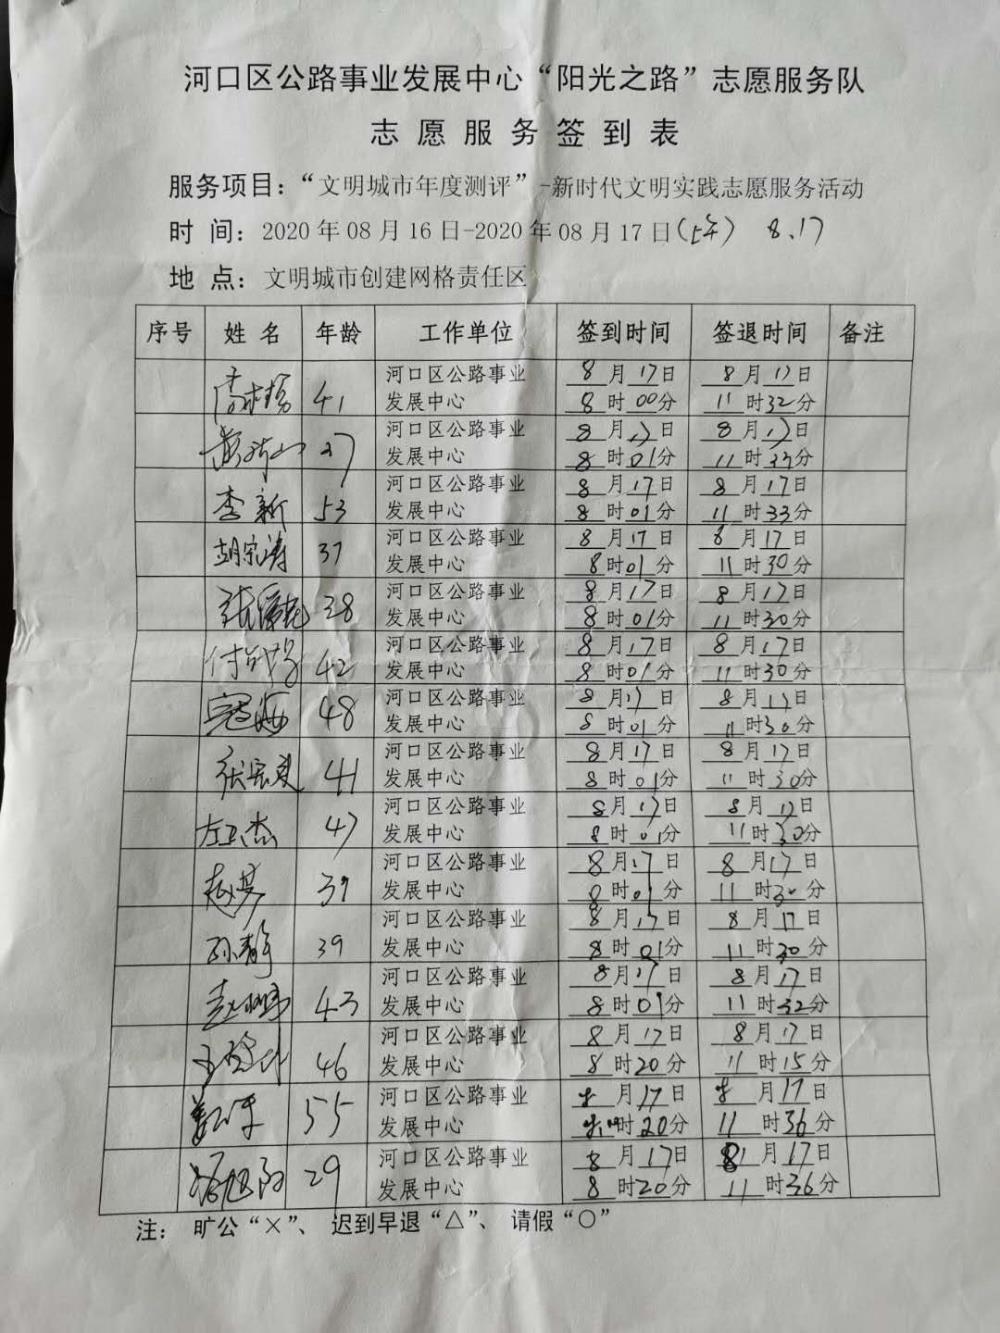 河口区公路事业发展中心“阳光之路”志愿服务队
志愿服务签到表
服务项目：“文明城市年度测评”-新时代文明实践志愿服务活动
时 间：2020年08月16日-2020年08月17日（上午） 8.17
地 点：文明城市创建网格责任区
序号 姓名 年龄 工作单位 签到时间 签退时间 备注
41 河口区公路事业 8月17日 8月17日
发展中心 8时00分 11时32分
37 河口区公路事业 8月17日 8月17日
发展中心 8时01分 11时33分
李新 53 河口区公路事业 8月17日 8月17日
发展中心 8时01分 11时33分
胡宗涛 37 河口区公路事业 8月17日 8月17日
发展中心 8时01分 11时30分
38 河口区公路事业 8月17日 8月17日
发展中心 8时01分 11时30分
42 河口区公路事业 8月17日 8月17日
发展中心 8时01分 11时30分
48 河口区公路事业 8月17日 8月17日
发展中心 8时01分 11时30分
41 河口区公路事业 8月17日 8月17日
发展中心 8时01分 11时30分
47 河口区公路事业 8月17日 8月17日
发展中心 8时01分 11时30分
河口区公路事业 8月17日 8月17日
发展中心 8时01分 11时30分
孙静 39 河口区公路事业 8月17日 8月17日
发展中心 8时01分 11时30分
43 河口区公路事业 8月17日 8月17日
发展中心 8时01分 11时32分
46 河口区公路事业 8月17日 8月17日
发展中心 8时20分 11时15分
55 河口区公路事业 8月17日 8月17日
发展中心 时20分 11时36分
29 河口区公路事业 8月17日 8月17日
发展中心 8时20分 11时36分
注： 旷公“×”、 迟到早退“△”、 请假“○”